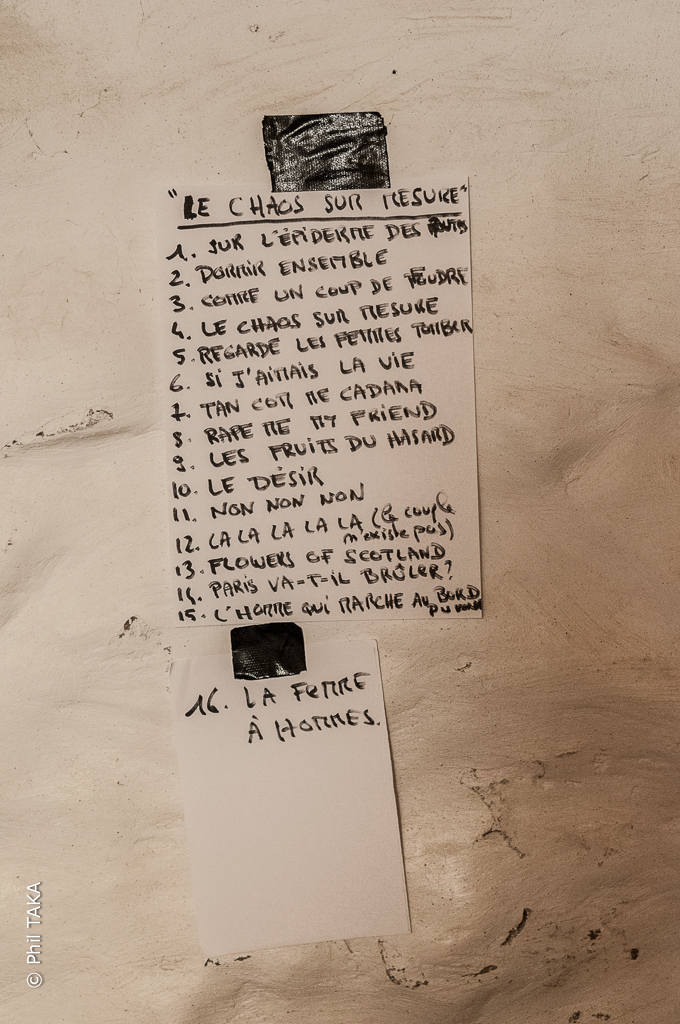 "LE CHAOS SUR MESURE"
1. SUR L'ÉPIDERME DES
2. DORMIR ENSEMBLE
3. COMME UN COUP DE FOUDRE
4. LE CHAOS SUR MESURE
5. REGARDE LES FEMMES TOMBER
6. SI J'AIMAIS LA VIE
7. TAN COM ME CADANA
8. RAPE ME MY FRIEND
9. LES FRUITS DU HASARD
10. LE DÉSIR
11. NON NON NON
12. LA LA LA LA LA (le couple
n'existe pas)
13. FLOWERS OF SCOTLAND
14. PARIS VA-T-IL BRÛLER?
15. L'HOMME QUI MARCHE AU BORD
DU MONDE
16. LA FEMME
À HOMMES.
© Phil TAKA